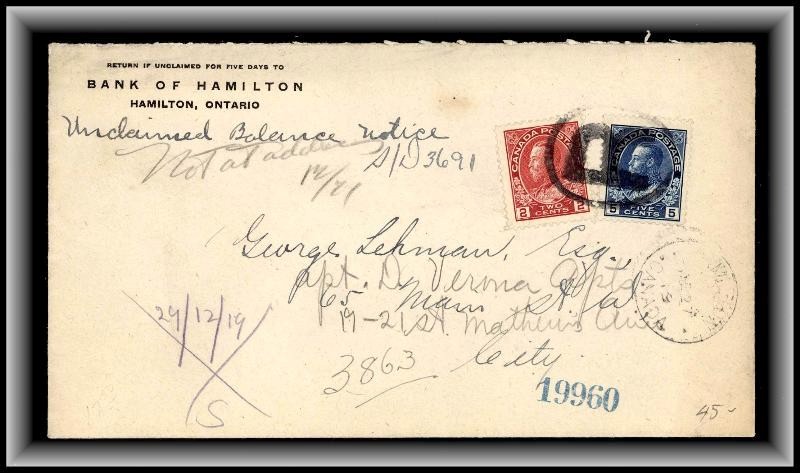 RETURN IF UNCLAIMED FOR FIVE DAYS TO
BANK OF HAMILTON
HAMILTON, ONTARIO
Unclaimed Balance Notice
Not at address
S/D 3691
CANADA POSTAGE
2 TWO CENTS 2
CANADA POSTAGE
5 FIVE CENTS 5
George Lehman, Esq.,
Apt. D. Verona Apts
65 Main St
19-21 St Mathews Ave
City.
3863
29/12/19
S.
19960
CANADA
45-